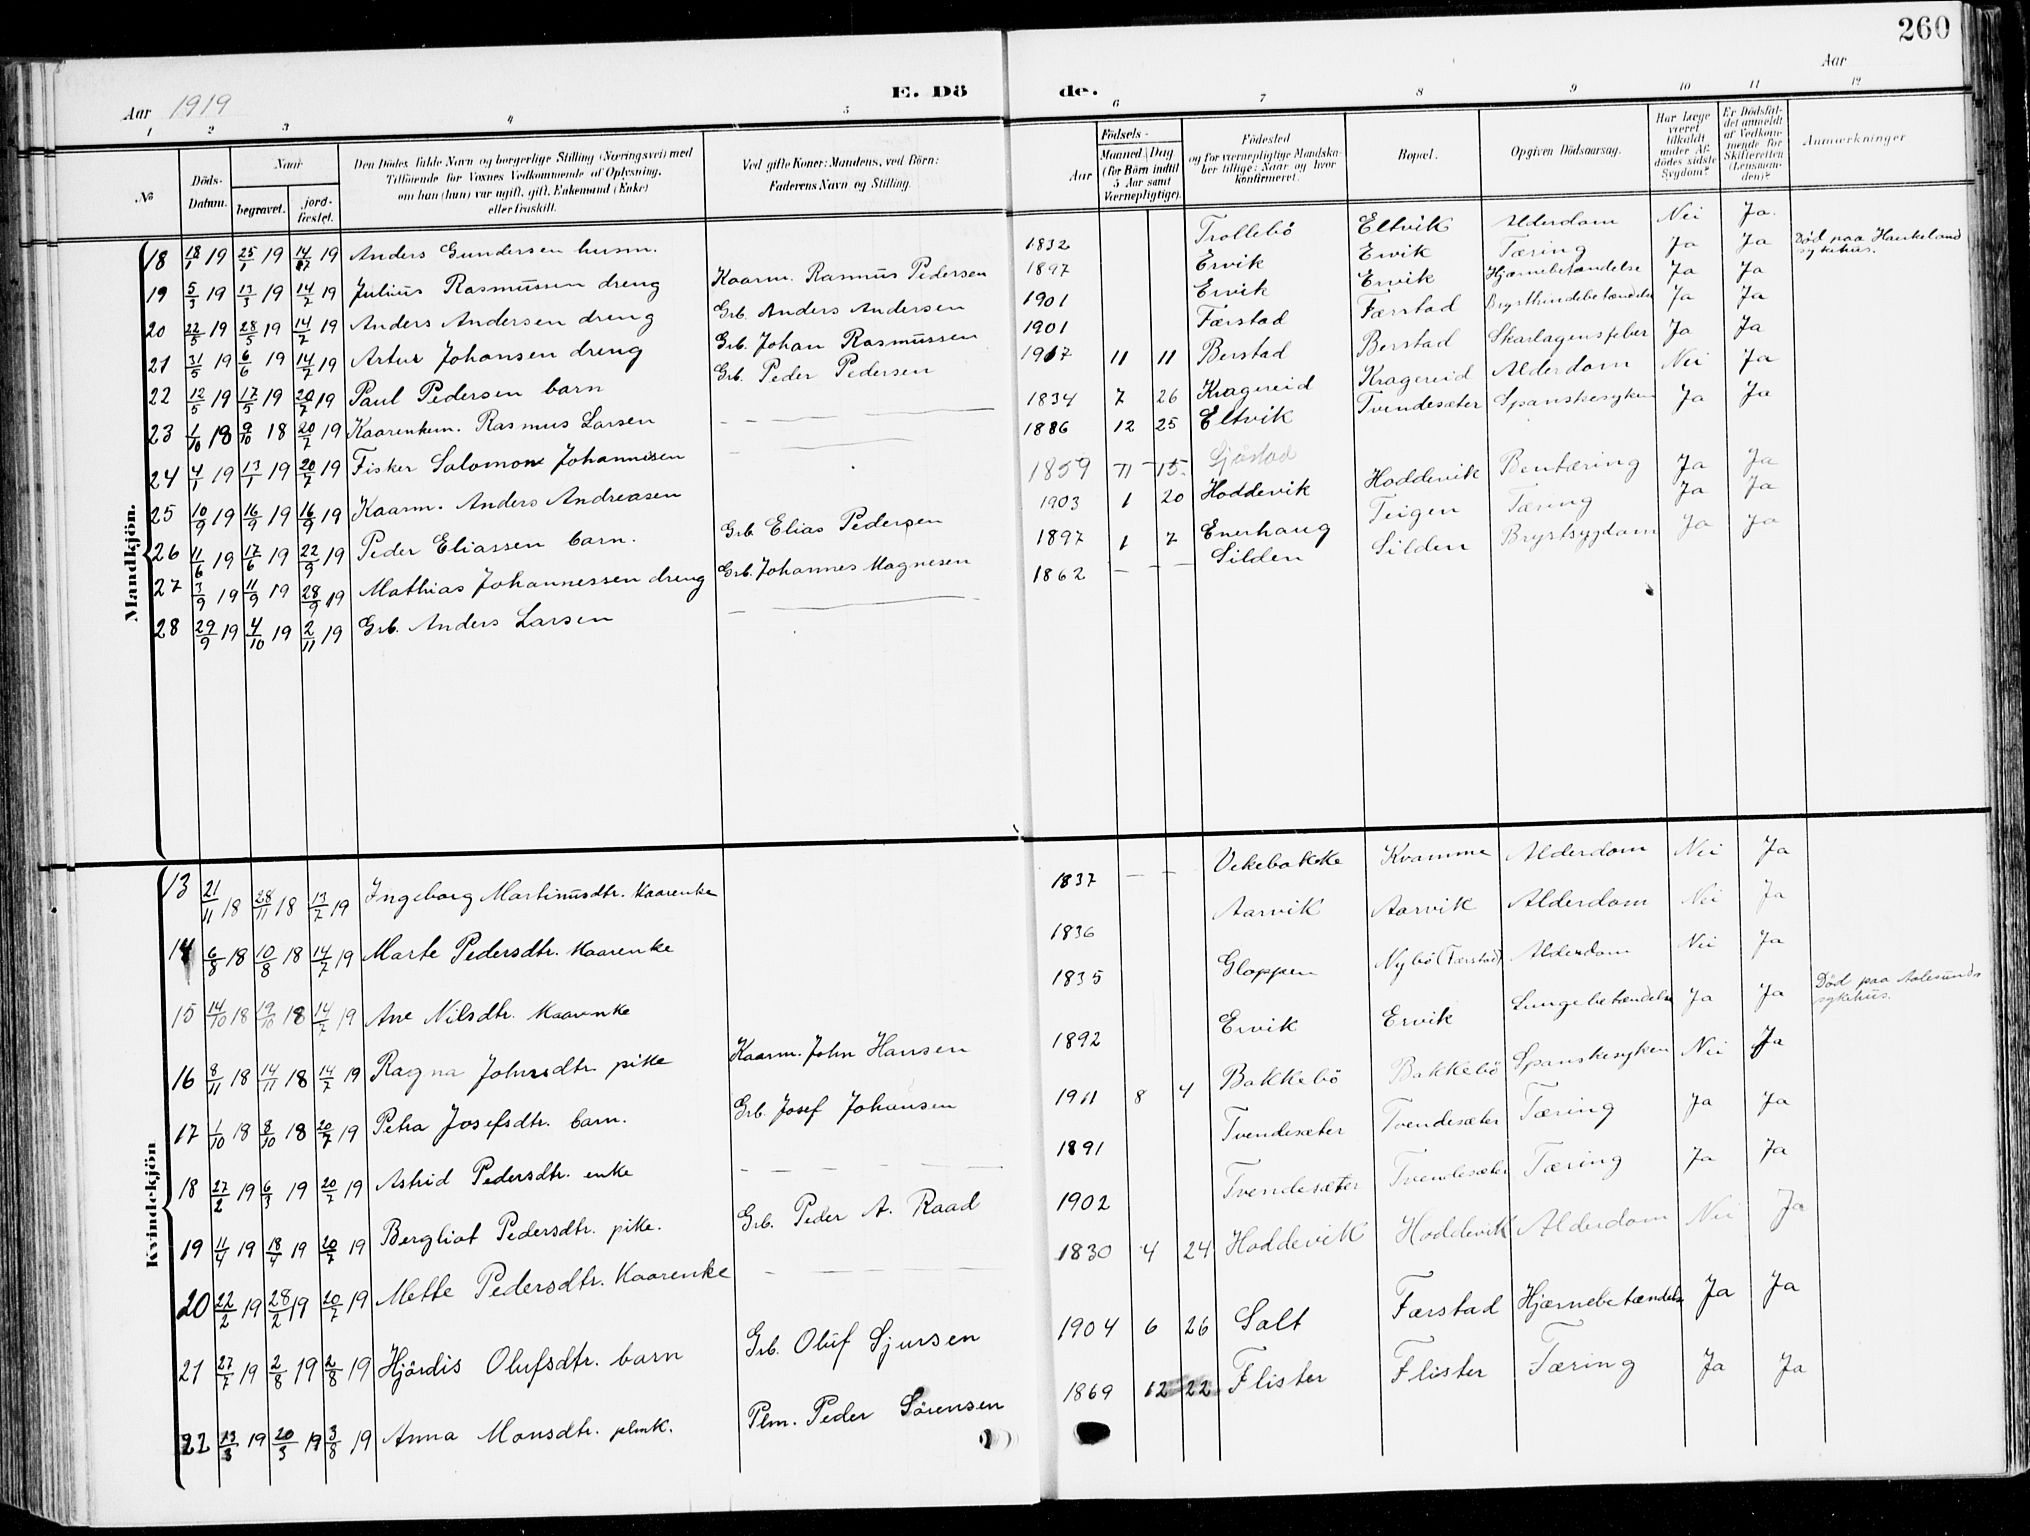 260
Aar 1919
E. Dö de.
Aar
1 2 3 4 5 6 7 8 9 10 11 12
No
Döds-Datum.
Naar
begravet.
jord-fæstet.
Den Dödes fulde Navn og borgerlige Stilling (Næringsvei) med
Tilföiende for Voxnes Vedkommende af Oplysning,
om han (hun) var ugift, gift, Enkemand (Enke)
eller fraskilt.
Ved gifte Koner: Mandens, ved Börn:
Faderens Navn og Stilling.
Födsels-
Aar
Maaned Dag
(for Börn indtil
5 Aar samt
Værnepligtige).
Födested
og for værnepligtige Mandska-
ber tillige: Naar og hvor
konfirmeret.
Bopæl.
Opgiven Dödsaarsag.
Har Læge
været
tilkaldt
under Af-
dödes sidste
Sygdom?
Er Dödsfal-
det anmeldt
af Vedkom-
mende for
Skifteretten
(Lensman-
den)?
Anmærkninger
Mandkjön.
18 18/1 19 25/1 19 14/7 19 Anders Gundersen husm. 1832 Trollebö Eltvik Alderdom Nei Ja.
19 5/3 19 13/3 19 14/7 19 Julius Rasmussen dreng Kaarm. Rasmus Pedersen 1897 Ervik Ervik Tæring Ja Ja Död paa Haukeland sykehus.
20 22/5 19 28/5 19 14/7 19 Anders Andersen dreng Grb. Anders Andersen 1901 Ervik Ervik Hjernebetændelse Ja Ja
21 31/5 19 6/6 19 14/7 19 Artur Johansen dreng Grb. Johan Rasmussen 1901 Færstad Færstad Brysthindebetændelse Ja Ja
22 12/5 19 17/5 19 20/7 19 Paul Pedersen barn Grb. Peder Pedersen 1917 11 11 Berstad Berstad Skarlagensfeber Ja Ja
23 1/10 18 9/10 18 20/7 19 Kaarenkem. Rasmus Larsen — — 1834 7 26 Kragereid Kragereid Alderdom Nei Ja
24 4/1 19 13/1 19 20/7 19 Fisker Salomon Johannesen — — 1886 12 25 Eltvik Tvendesæter Spanskesyken Ja Ja
25 10/9 19 16/9 19 16/9 19 Kaarm. Anders Andreasen 1859 11 15. Sjåstad Hoddevik Bentæring Ja Ja
26 11/6 19 17/6 19 22/9 19 Peder Eliassen barn. Grb Elias Pedersen 1903 1 20 Hoddevik Teigen Tæring Ja Ja
27 3/9 19 11/9 19 28/9 19 Mathias Johannessen dreng Grb. Johannes Magnesen 1897 1 7 Enerhaug Silden Brystsygdom Ja Ja
28 29/9 19 4/10 19 2/11 19 Grb. Anders Larsen — — 1862 — — — Silden
Kvindekjön
13 21/11 18 28/11 18 13/7 19 Ingeborg Martinusdtr. Kaarenke 1837 — — Vekebakke Kvamme Alderdom Nei Ja
14 6/8 18 10/8 18 14/7 19 Marte Pedersdtr. Kaarenke 1836 Aarvik Aarvik Alderdom Nei Ja
15 14/10 18 19/10 18 14/7 19 Ane Nilsdtr. Kaarenke 1835 Gloppen Nybö (Færstad) Alderdom Nei Ja
16 8/11 18 14/11 18 14/7 19 Ragna Johnsdtr pike Kaarm. John Hansen 1892 Ervik Ervik Lungebetændelse Ja Ja Död paa Aalesunds sykehus.
17 1/10 18 8/10 18 20/7 19 Petra Josefsdtr. barn. Grb. Josef Johansen 1911 8 4 Bakkebö Bakkebö Spanskesyken Nei Ja
18 27/2 19 6/3 19 20/7 19 Astrid Pedersdtr. enke — — — — 1891 Tvendesæter Tvendesæter Tæring Ja Ja
19 11/4 19 18/4 19 20/7 19 Bergliot Pedersdtr. pike. Grb. Peder A. Raad 1902 Tvendesæter Tvendesæter Tæring Ja Ja
20 22/2 19 28/2 19 20/7 19 Mette Pedersdtr. Kaarenke — — — — 1830 4 24 Hoddevik Hoddevik Alderdom Nei Ja
21 27/7 19 2/8 19 2/8 19 Hjördis Olufsdtr. barn Grb. Oluf Sjursen 1904 6 26 Salt Færstad Hjærnebetændelse Ja Ja
22 13/3 19 20/3 19 3/8 19 Anna Monsdtr. plmk. Plm. Peder Sörensen 1869 12 22 Flister Flister Tæring Ja Ja